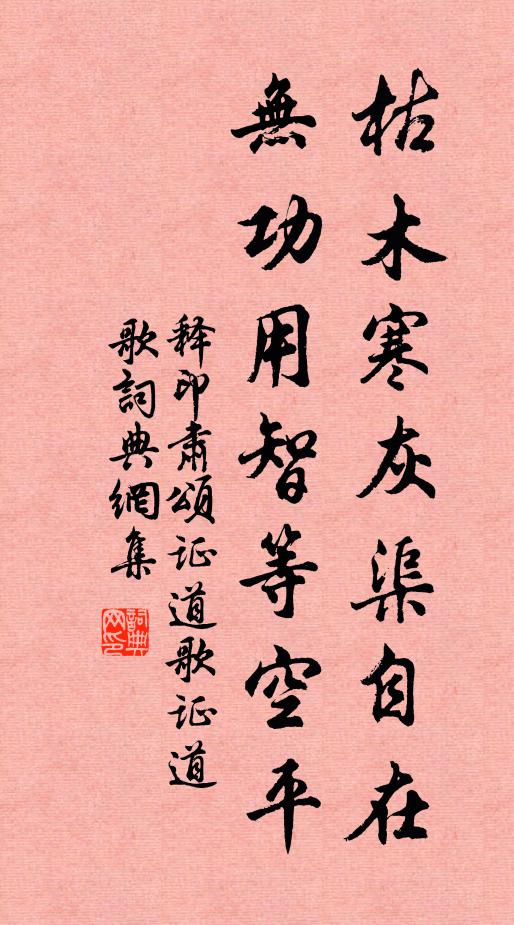 枯木寒灰渠自在
無功用智等空平
释印肃頌证道歌证道
歌詞典網集
詞典
网印